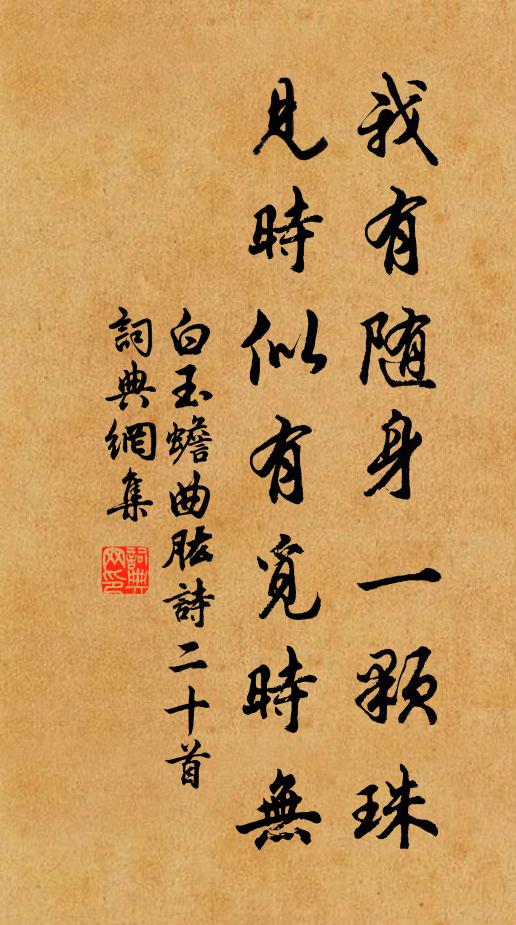 我有随身一顆珠
見時似有覓時無
白玉蟾曲肱詩二十首
詞典網集
詞典網印